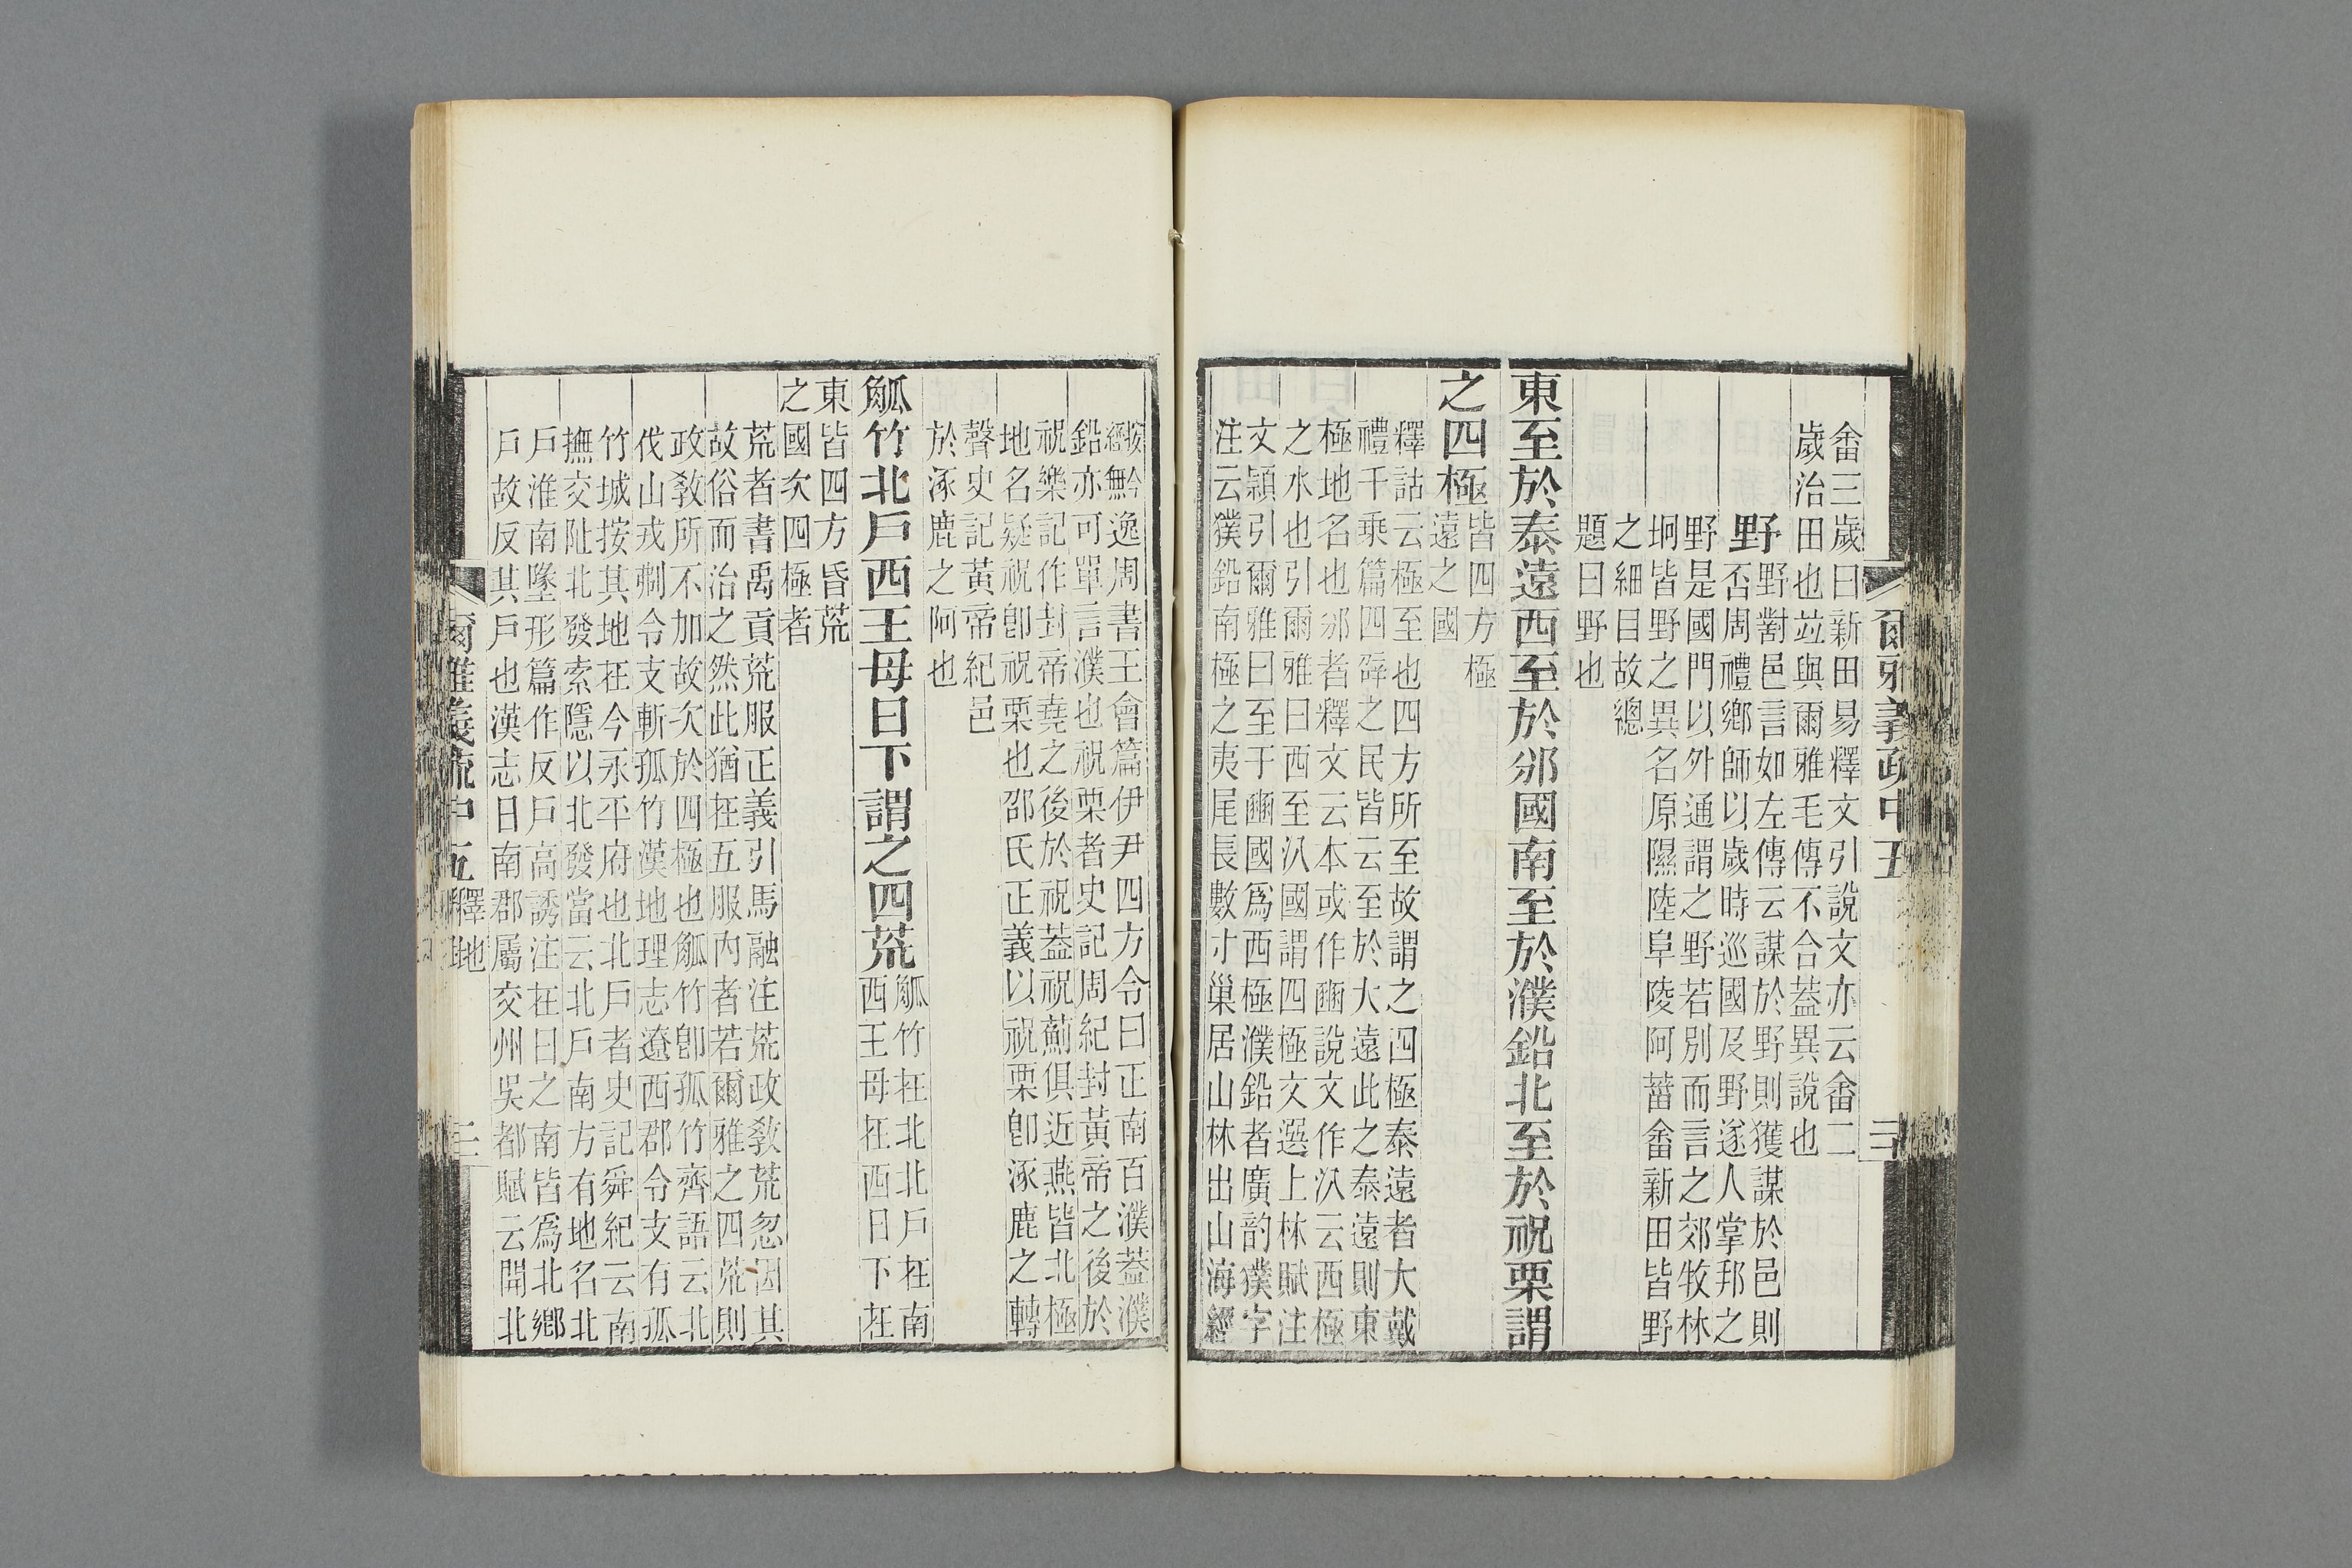 畬三歲曰新田易釋文引說文亦云畬二
歲治田也竝與爾雅毛傳不合葢異說也
野
野對邑言如左傳云謀於野則獲謀於邑則
否周禮鄉師以歲時巡國及野遂人掌邦之
野是國門以外通謂之野若別而言之郊牧林
坰皆野之異名原隰陸阜陵阿葘畬新田皆野
之細目故總
題曰野也
東至於泰遠西至於邠國南至於濮鉛北至於祝栗謂
之四極
皆四方極
遠之國
釋詁云極至也四方所至故謂之四極泰遠者大戴
禮千乘篇四辟之民皆云至於大遠此之泰遠則東
極地名也邠者釋文云本或作豳說文作汃云西極
之水也引爾雅曰西至汃國謂四極文選上林賦注
文穎引爾雅曰至于豳國爲西極濮鉛者廣韵獛字
注云獛鉛南極之夷尾長數寸巢居山林出山海經
按
經無
逸周書王會篇伊尹四方令曰正南百濮葢濮
鉛亦可單言濮也祝栗者史記周紀封黃帝之後於
祝樂記作封帝堯之後於祝葢祝薊俱近燕皆北極
地名疑祝卽祝栗也邵氏正義以祝栗卽涿鹿之轉
聲史記黃帝紀邑
於涿鹿之阿也
觚竹北戶西王母日下謂之四荒
觚竹在北北戶在南
西王母在西日下在
東皆四方昏荒
之國次四極者
荒者書禹貢荒服正義引馬融注荒政敎荒忽因其
故俗而治之然此猶在五服內者若爾雅之四荒則
政敎所不加故次於四極也觚竹卽孤竹齊語云北
伐山戎㓨令支斬孤竹漢地理志遼西郡令支有孤
竹城按其地在今永平府也北戶者史記舜紀云南
撫交阯北發索隱以北發當云北戶南方有地名北
戶淮南墬形篇作反戶高誘注在日之南皆爲北鄉
戶故反其戶也漢志日南郡屬交州吳都賦云開北
爾雅義疏中五
二
爾雅義疏中五
釋地